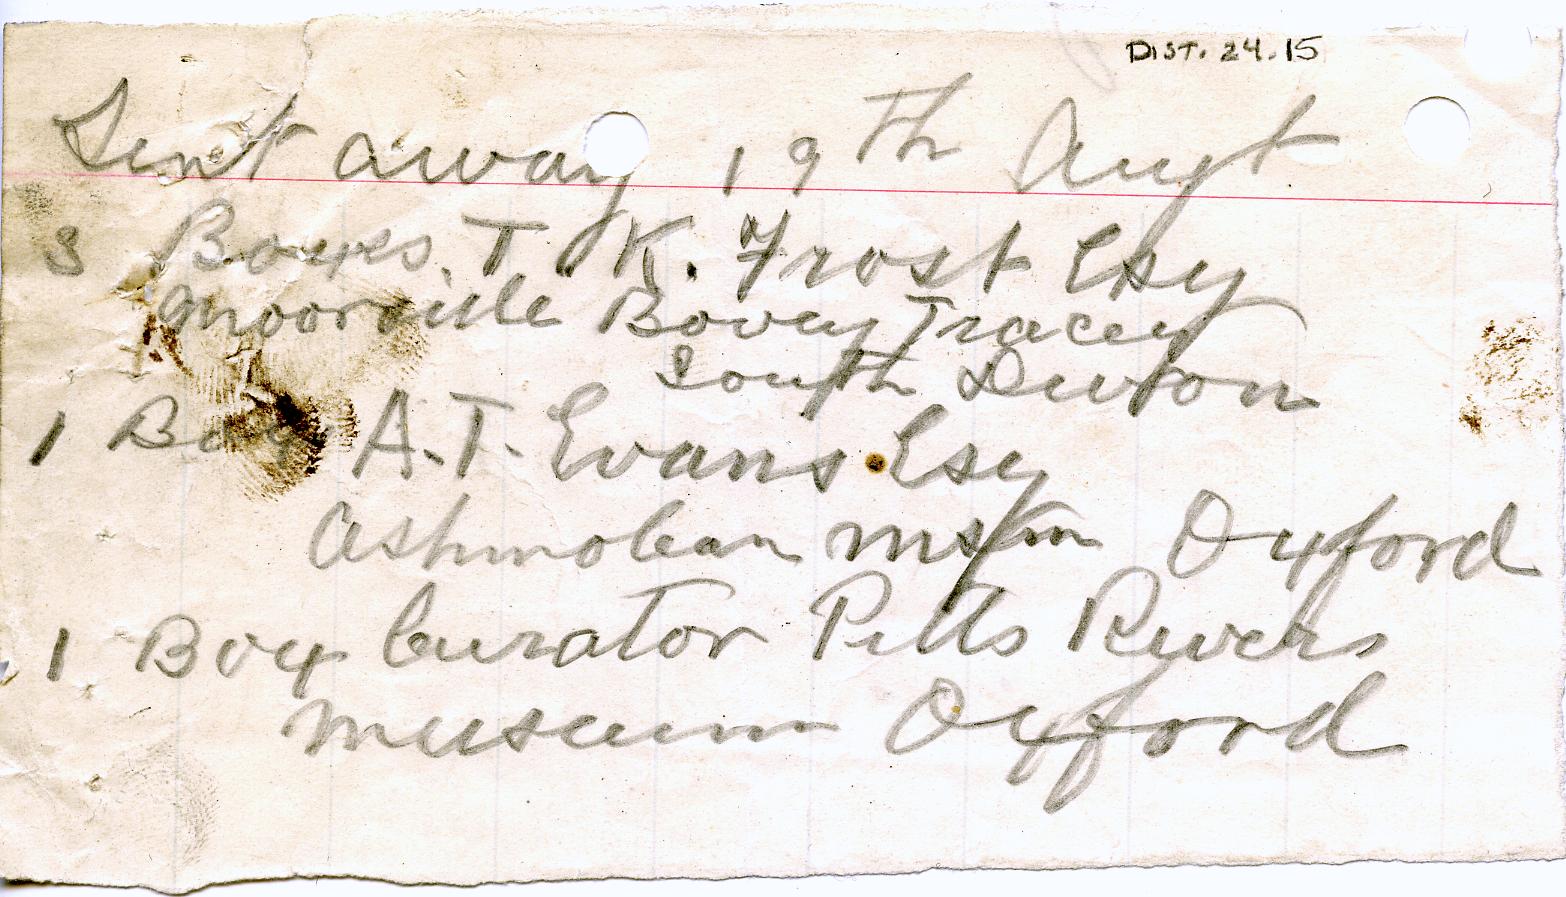 DIST. 24.15
Sent away 19th Augt
3 Boxes. T K. Frost Esq
Moorville Bovey Tracey
South Devon
1 Box A.T. Evans Esq
Ashmolean Mstm Oxford
1 Box Curator Pitts Rivers
Museum Oxford